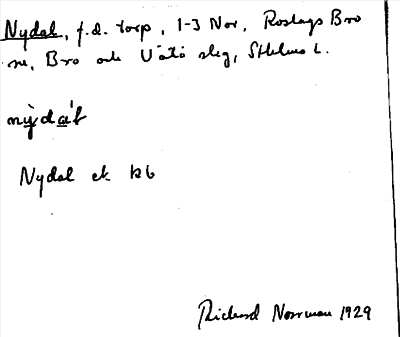 Nydal, f.d. torp, 1-3 Nor, Roslags Bro
sn, Bro och Vätö slg, Sthlms l.
Nydal ek kb
Richard Norrman 1929